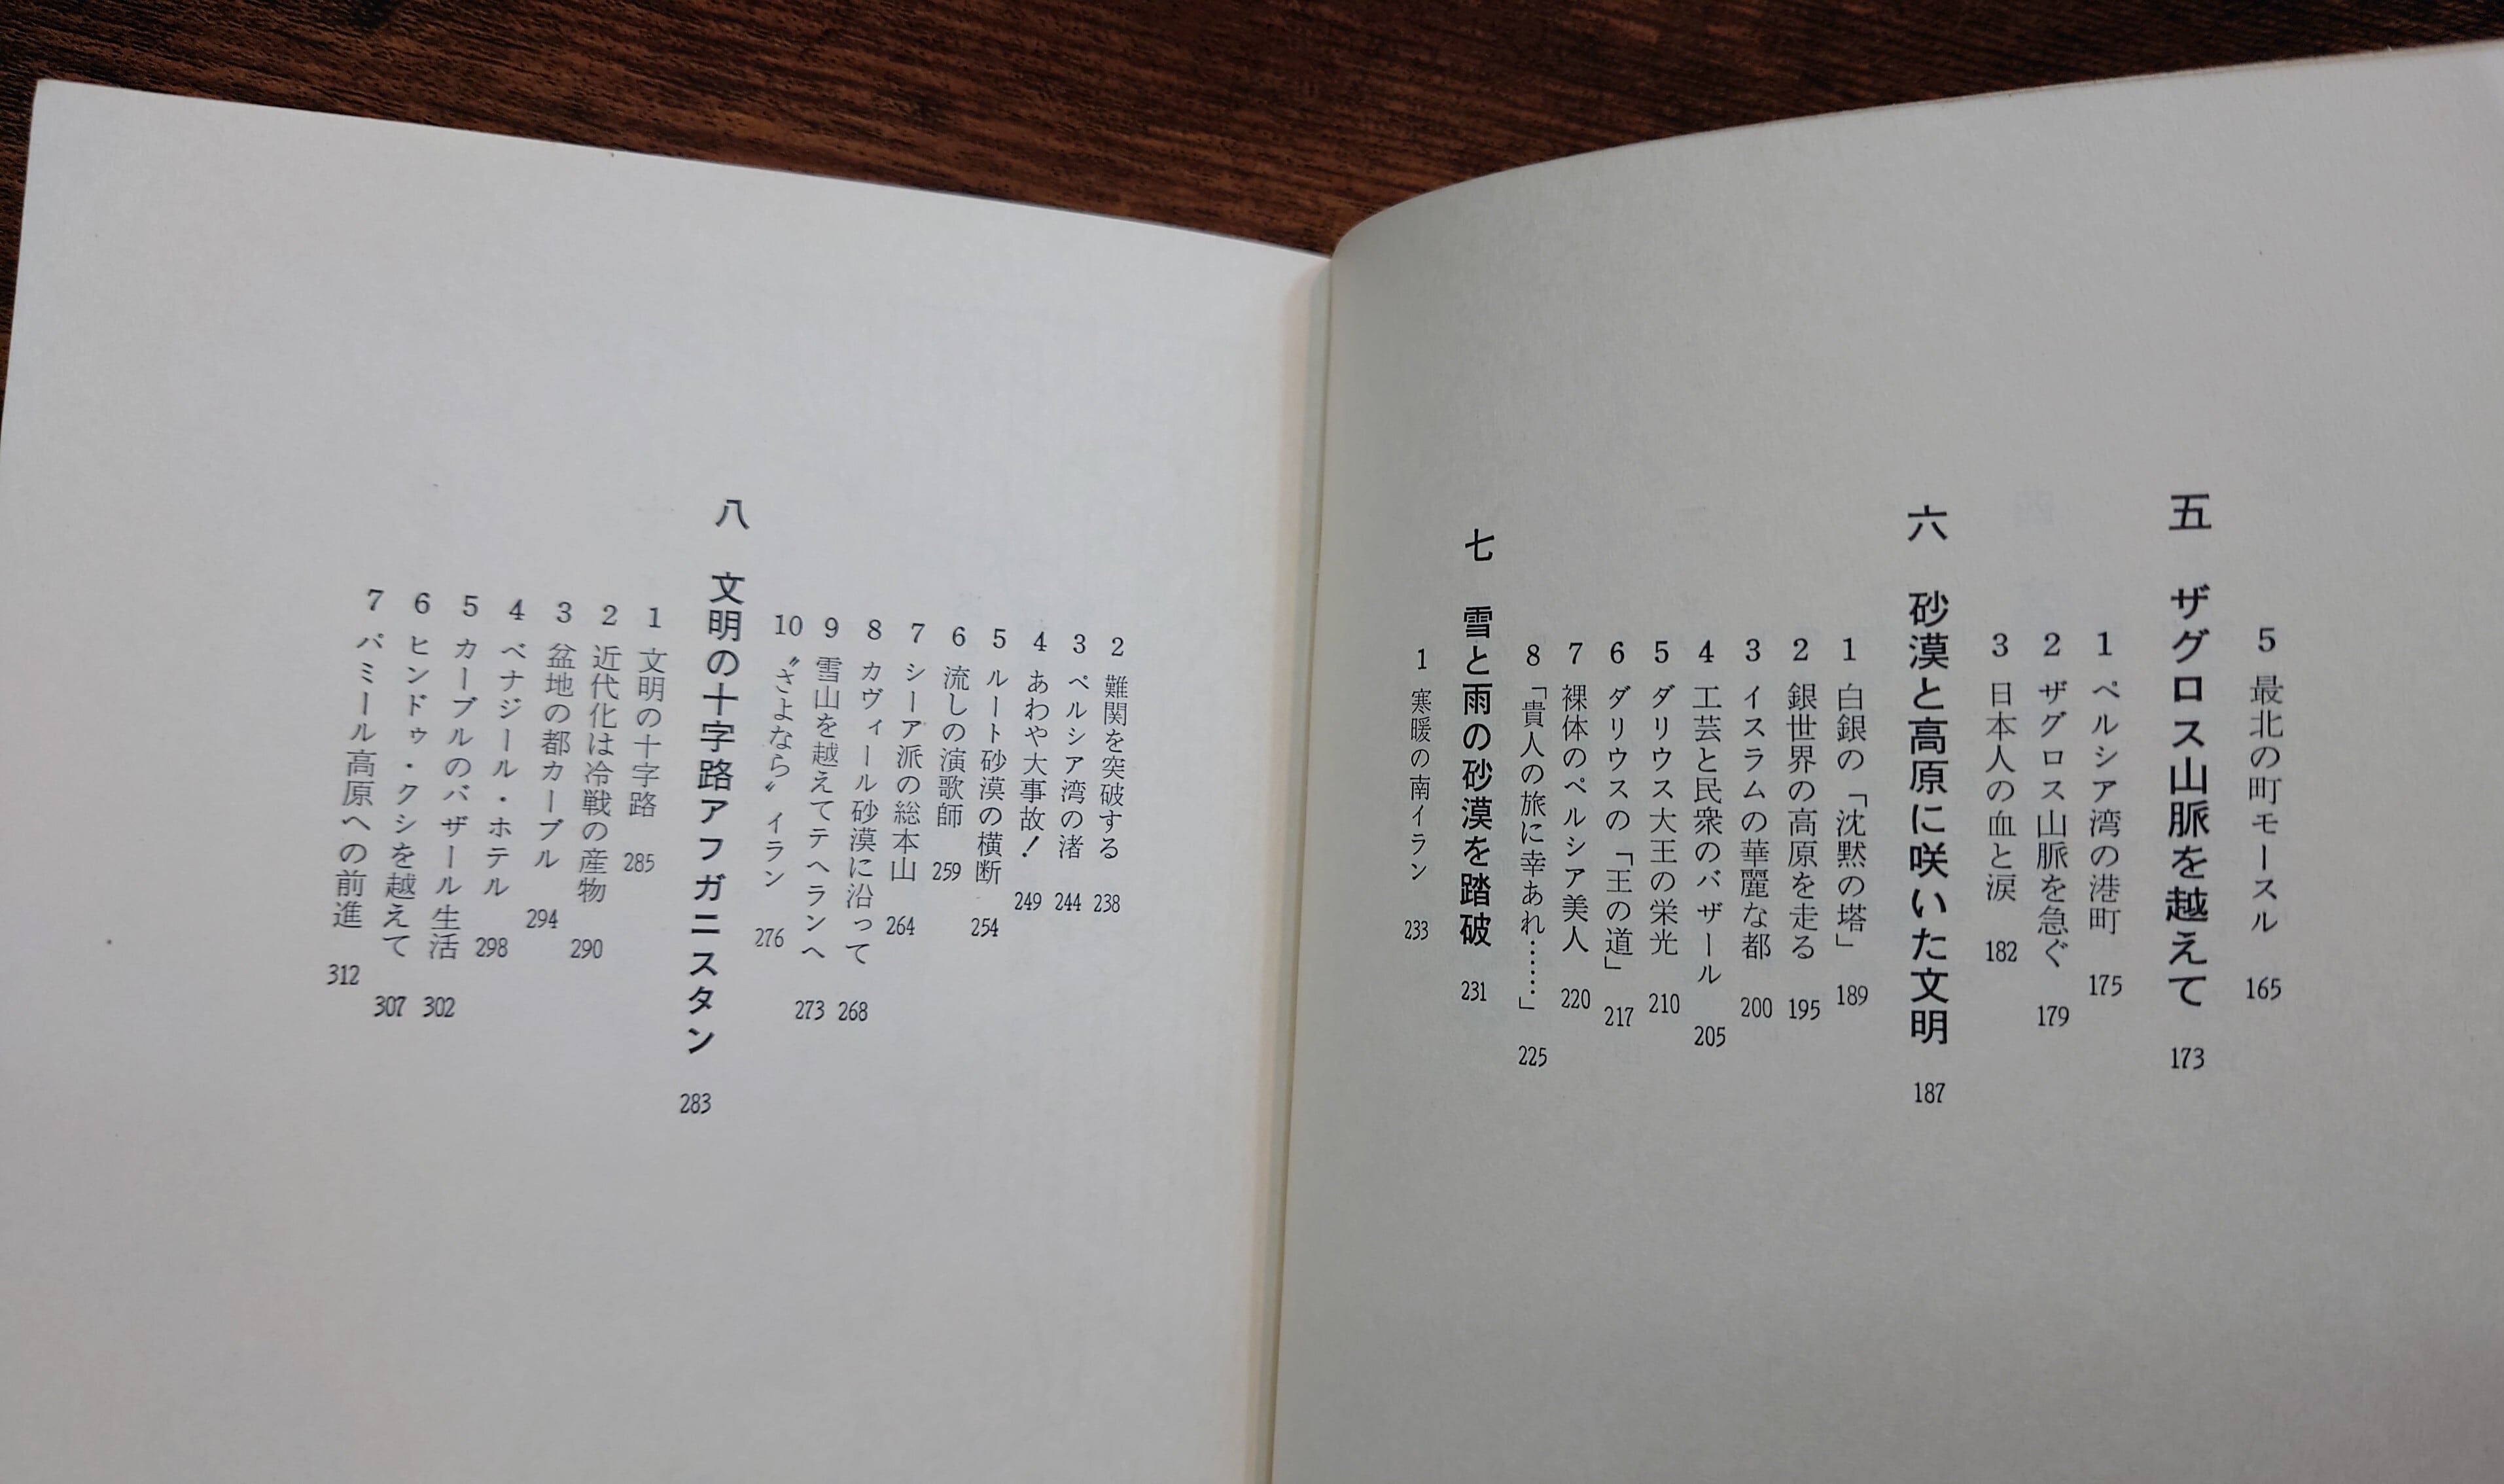 5 最北の町モースル 165
五 ザグロス山脈を越えて 173
1 ペルシア湾の港町 175
2 ザグロス山脈を急ぐ 179
3 日本人の血と涙 182
六 砂漠と高原に咲いた文明 187
1 白銀の「沈黙の塔」 189
2 銀世界の高原を走る 195
3 イスラムの華麗な都 200
4 工芸と民衆のバザール 205
5 ダリウス大王の栄光 210
6 ダリウスの「王の道」 217
7 裸体のペルシア美人 220
8 「貴人の旅に幸あれ……」 225
七 雪と雨の砂漠を踏破 231
1 寒暖の南イラン 233
2 難関を突破する 238
3 ペルシア湾の渚 244
4 あわや大事故！ 249
5 ルート砂漠の横断 254
6 流しの演歌師 259
7 シーア派の総本山 264
8 カヴィール砂漠に沿って 268
9 雪山を越えてテヘランへ 273
10 〝さよなら〟イラン 276
八 文明の十字路アフガニスタン 283
1 文明の十字路 285
2 近代化は冷戦の産物 290
3 盆地の都カーブル 294
4 ベナジール・ホテル 298
5 カーブルのバザール生活 302
6 ヒンドゥ・クシを越えて 307
7 パミール高原への前進 312